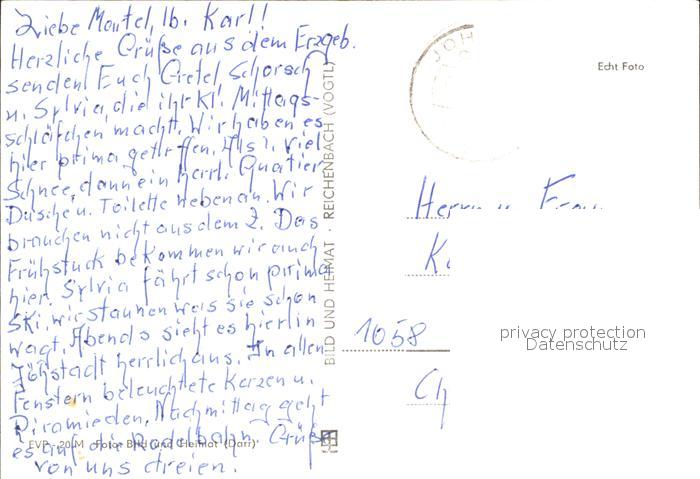 Liebe Mautel, lb. Karl!
Herzliche Grüße aus dem Erzgeb.
senden Euch Gretel, Schorsch
u. Sylvia, die ihr kl. Mittags-
schläfchen macht. Wir haben es
hier prima getroffen. Als 1. viel
Schnee, dann ein herrl. Quatier
Dusche u. Toilette nebenan. Wir
brauchen nicht aus dem Z. Das
Frühstück bekommen wir auch
hier. Sylvia fährt schon prima
Ski, wir staunen was sie schon
wagt. Abends sieht es hier in
Jöhstadt herrlich aus. In allen
Fenstern beleuchtete Kerzen u.
Piramieden. Nachmittag geht
es auf die Rodelbahn. Grüße
von uns dreien.
EVP -,20 M Foto: Bild und Heimat (Darr)
BILD UND HEIMAT · REICHENBACH (VOGTL)
JOH
Echt Foto
Herrn u. Frau
1058
privacy protection
Datenschutz